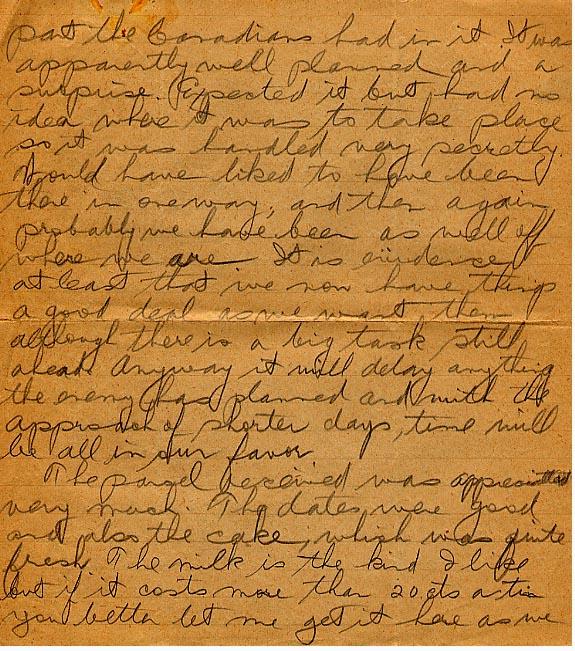 part the Canadians had in it. It was
apparently well planned and a
surprise. Expected it but had no
idea where it was to take place
so it was handled very secretly.
Would have liked to have been
there in one way, and then again
probably we have been as well off
where we are. It is evidence
at least that we now have things
a good deal as we want them
although there is a big task still
ahead. Anyway it will delay anything
the enemy has planned and with the
approach of shorter days, time will
be all in our favor
The parsel received was appreciated
very much. The dates were good
and also the cake, which was quite
fresh. The milk is the kind I like
but if it costs more than 20 cts a tin
you better let me get it here as we